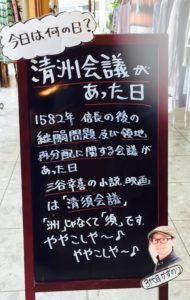 今日は何の日?
清洲会議が
あった日
1582年 信長の後の
継嗣問題 及び 領地
再分配に関する会議が
あった日
三谷幸喜の小説、映画
は「清須会議」
"洲"じゃなくて「須」です。
ややこしや〜♪
ややこしや〜♪